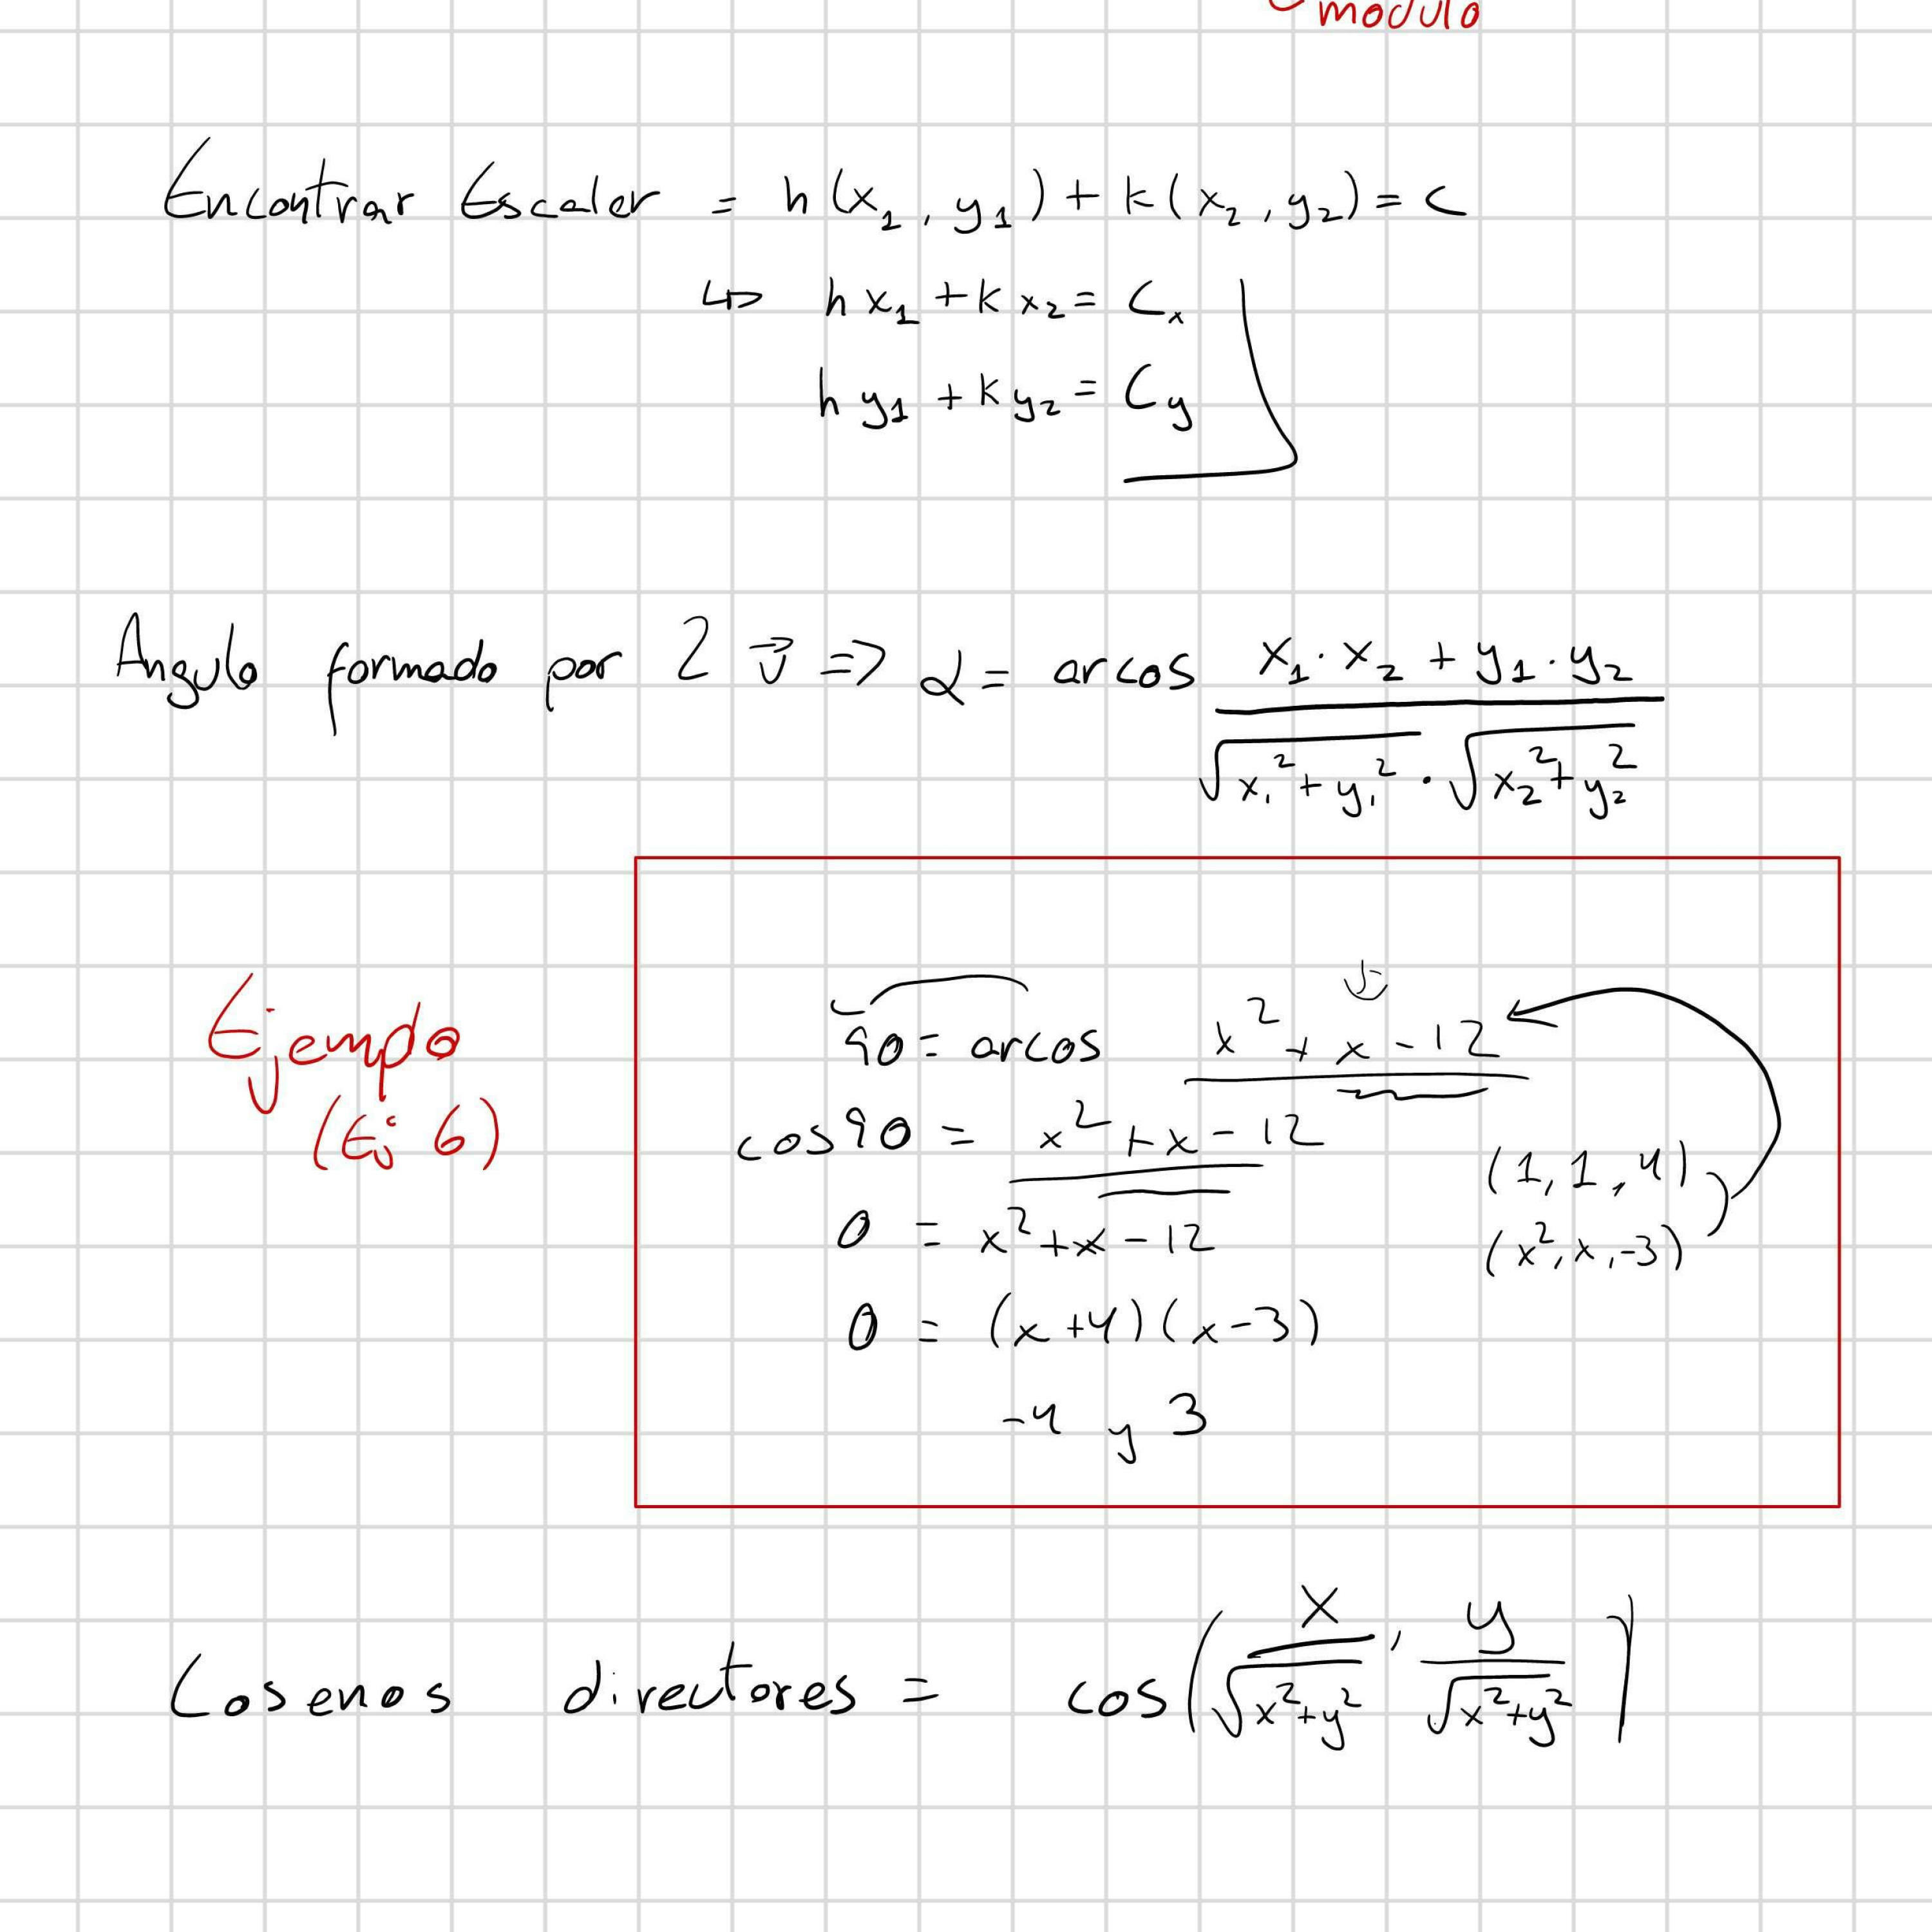 modulo
Encontrar Escalar = h(x₁, y₁) + k(x₂, y₂) = c
↳ hx₁ + kx₂ = Cₓ
hy₁ + ky₂ = Cy
Angulo formado por 2 v⃗ => α = arcos (x₁·x₂ + y₁·y₂) / (√(x₁² + y₁²) · √(x₂² + y₂²))
Ejemplo
(Ej 6)
90 = arcos x² + x - 12
cos 90 = x² + x - 12
(1, 1, 4)
0 = x² + x - 12
(x², x, -3)
0 = (x + 4)(x - 3)
-4 y 3
Cosenos directores = cos(x / √(x² + y²), y / √(x² + y²))